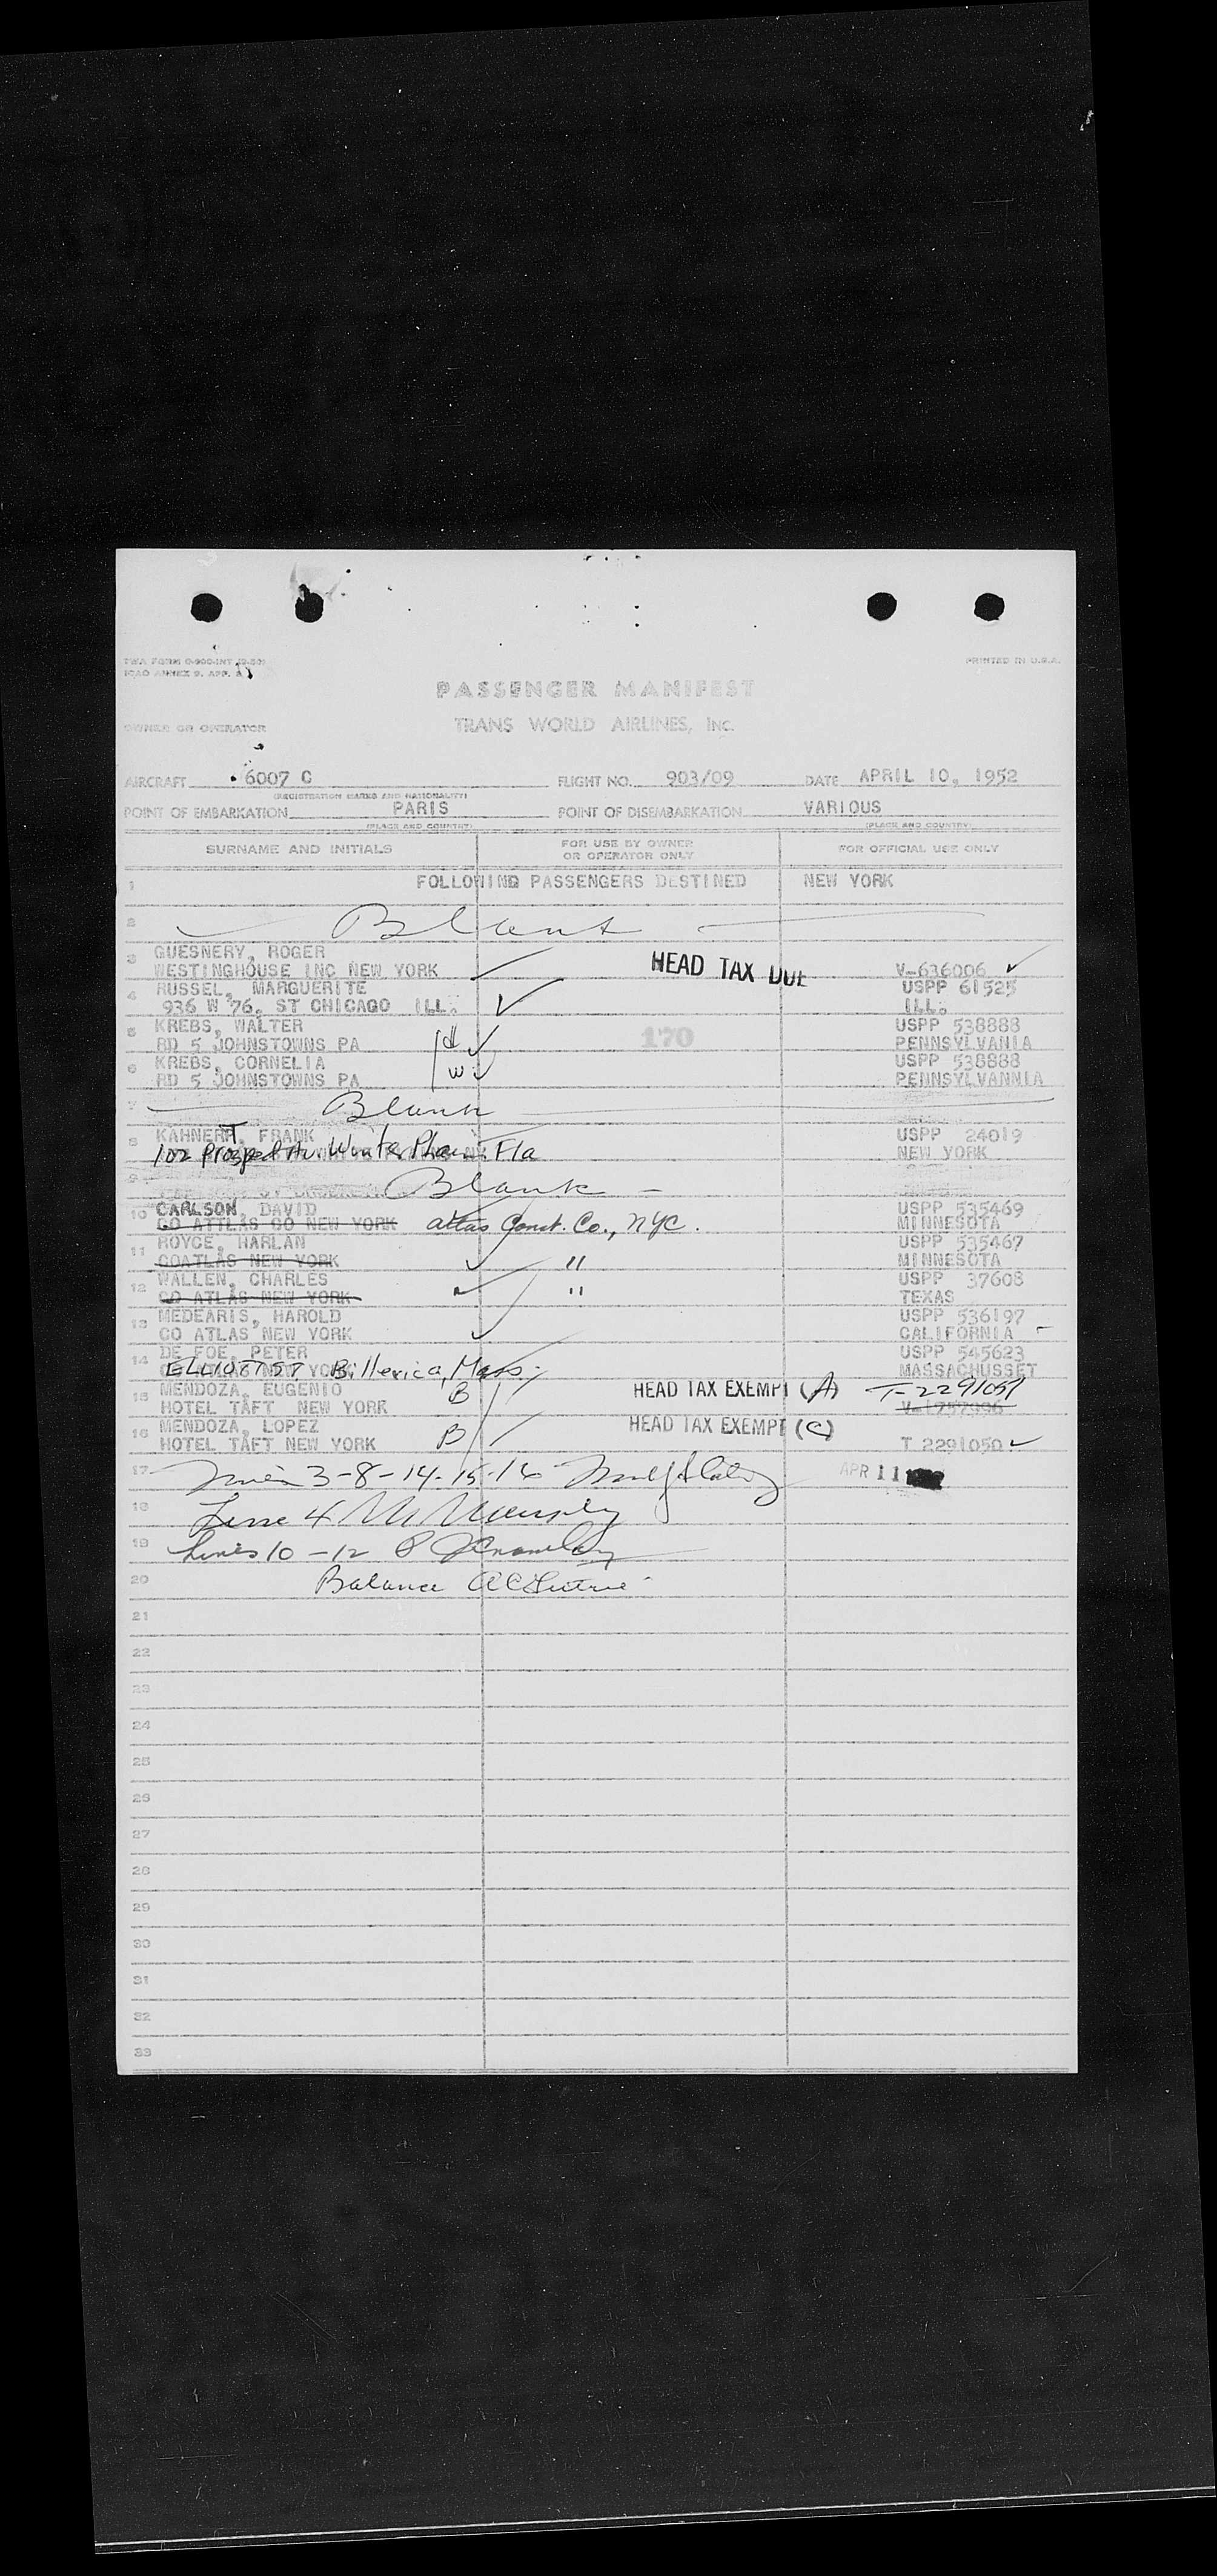 TWA FORM 0-900-INT (9-50)
ICAO ANNEX 9, APP. A
PRINTED IN U.S.A.
PASSENGER MANIFEST
OWNER OR OPERATOR TRANS WORLD AIRLINES, Inc.
AIRCRAFT 6007 C FLIGHT NO. 903/09 DATE APRIL 10, 1952
(REGISTRATION MARKS AND NATIONALITY)
POINT OF EMBARKATION PARIS POINT OF DISEMBARKATION VARIOUS
(PLACE AND COUNTRY) (PLACE AND COUNTRY)
SURNAME AND INITIALS FOR USE BY OWNER OR OPERATOR ONLY FOR OFFICIAL USE ONLY
1 FOLLOWING PASSENGERS DESTINED NEW YORK
2 Blank
3 GUESNERY, ROGER
WESTINGHOUSE INC NEW YORK HEAD TAX DUE V-636006
4 RUSSEL, MARGUERITE USPP 61525
936 W 76, ST CHICAGO ILL. ILL.
5 KREBS, WALTER USPP 538888
RD 5 JOHNSTOWNS PA H 170 PENNSYLVANIA
6 KREBS, CORNELIA USPP 538888
RD 5 JOHNSTOWNS PA W PENNSYLVANNIA
7 Blank
8 KAHNERT, FRANK USPP 24019
102 Prospect Av. Winter Fla NEW YORK
9 Blank
10 CARLSON, DAVID USPP 535469
CO ATTLAS CO NEW YORK atlas Const. Co., NYC. MINNESOTA
11 ROYCE, HARLAN USPP 535467
COATLAS NEW YORK " MINNESOTA
12 WALLEN, CHARLES USPP 37608
CO ATLAS NEW YORK " TEXAS
13 MEDEARIS, HAROLD USPP 536197
CO ATLAS NEW YORK CALIFORNIA
14 DE FOE, PETER USPP 545623
ELLIOTT ST Billerica, Mass. MASSACHUSSET
15 MENDOZA, EUGENIO B HEAD TAX EXEMPT (A) T-2291051
HOTEL TAFT NEW YORK
16 MENDOZA, LOPEZ HEAD TAX EXEMPT (C)
HOTEL TAFT NEW YORK B T 2291050
17 3-8-14-15-16 APR 11
18 Line 4
19 Lines 10-12
20 Balance
21
22
23
24
25
26
27
28
29
30
31
32
33